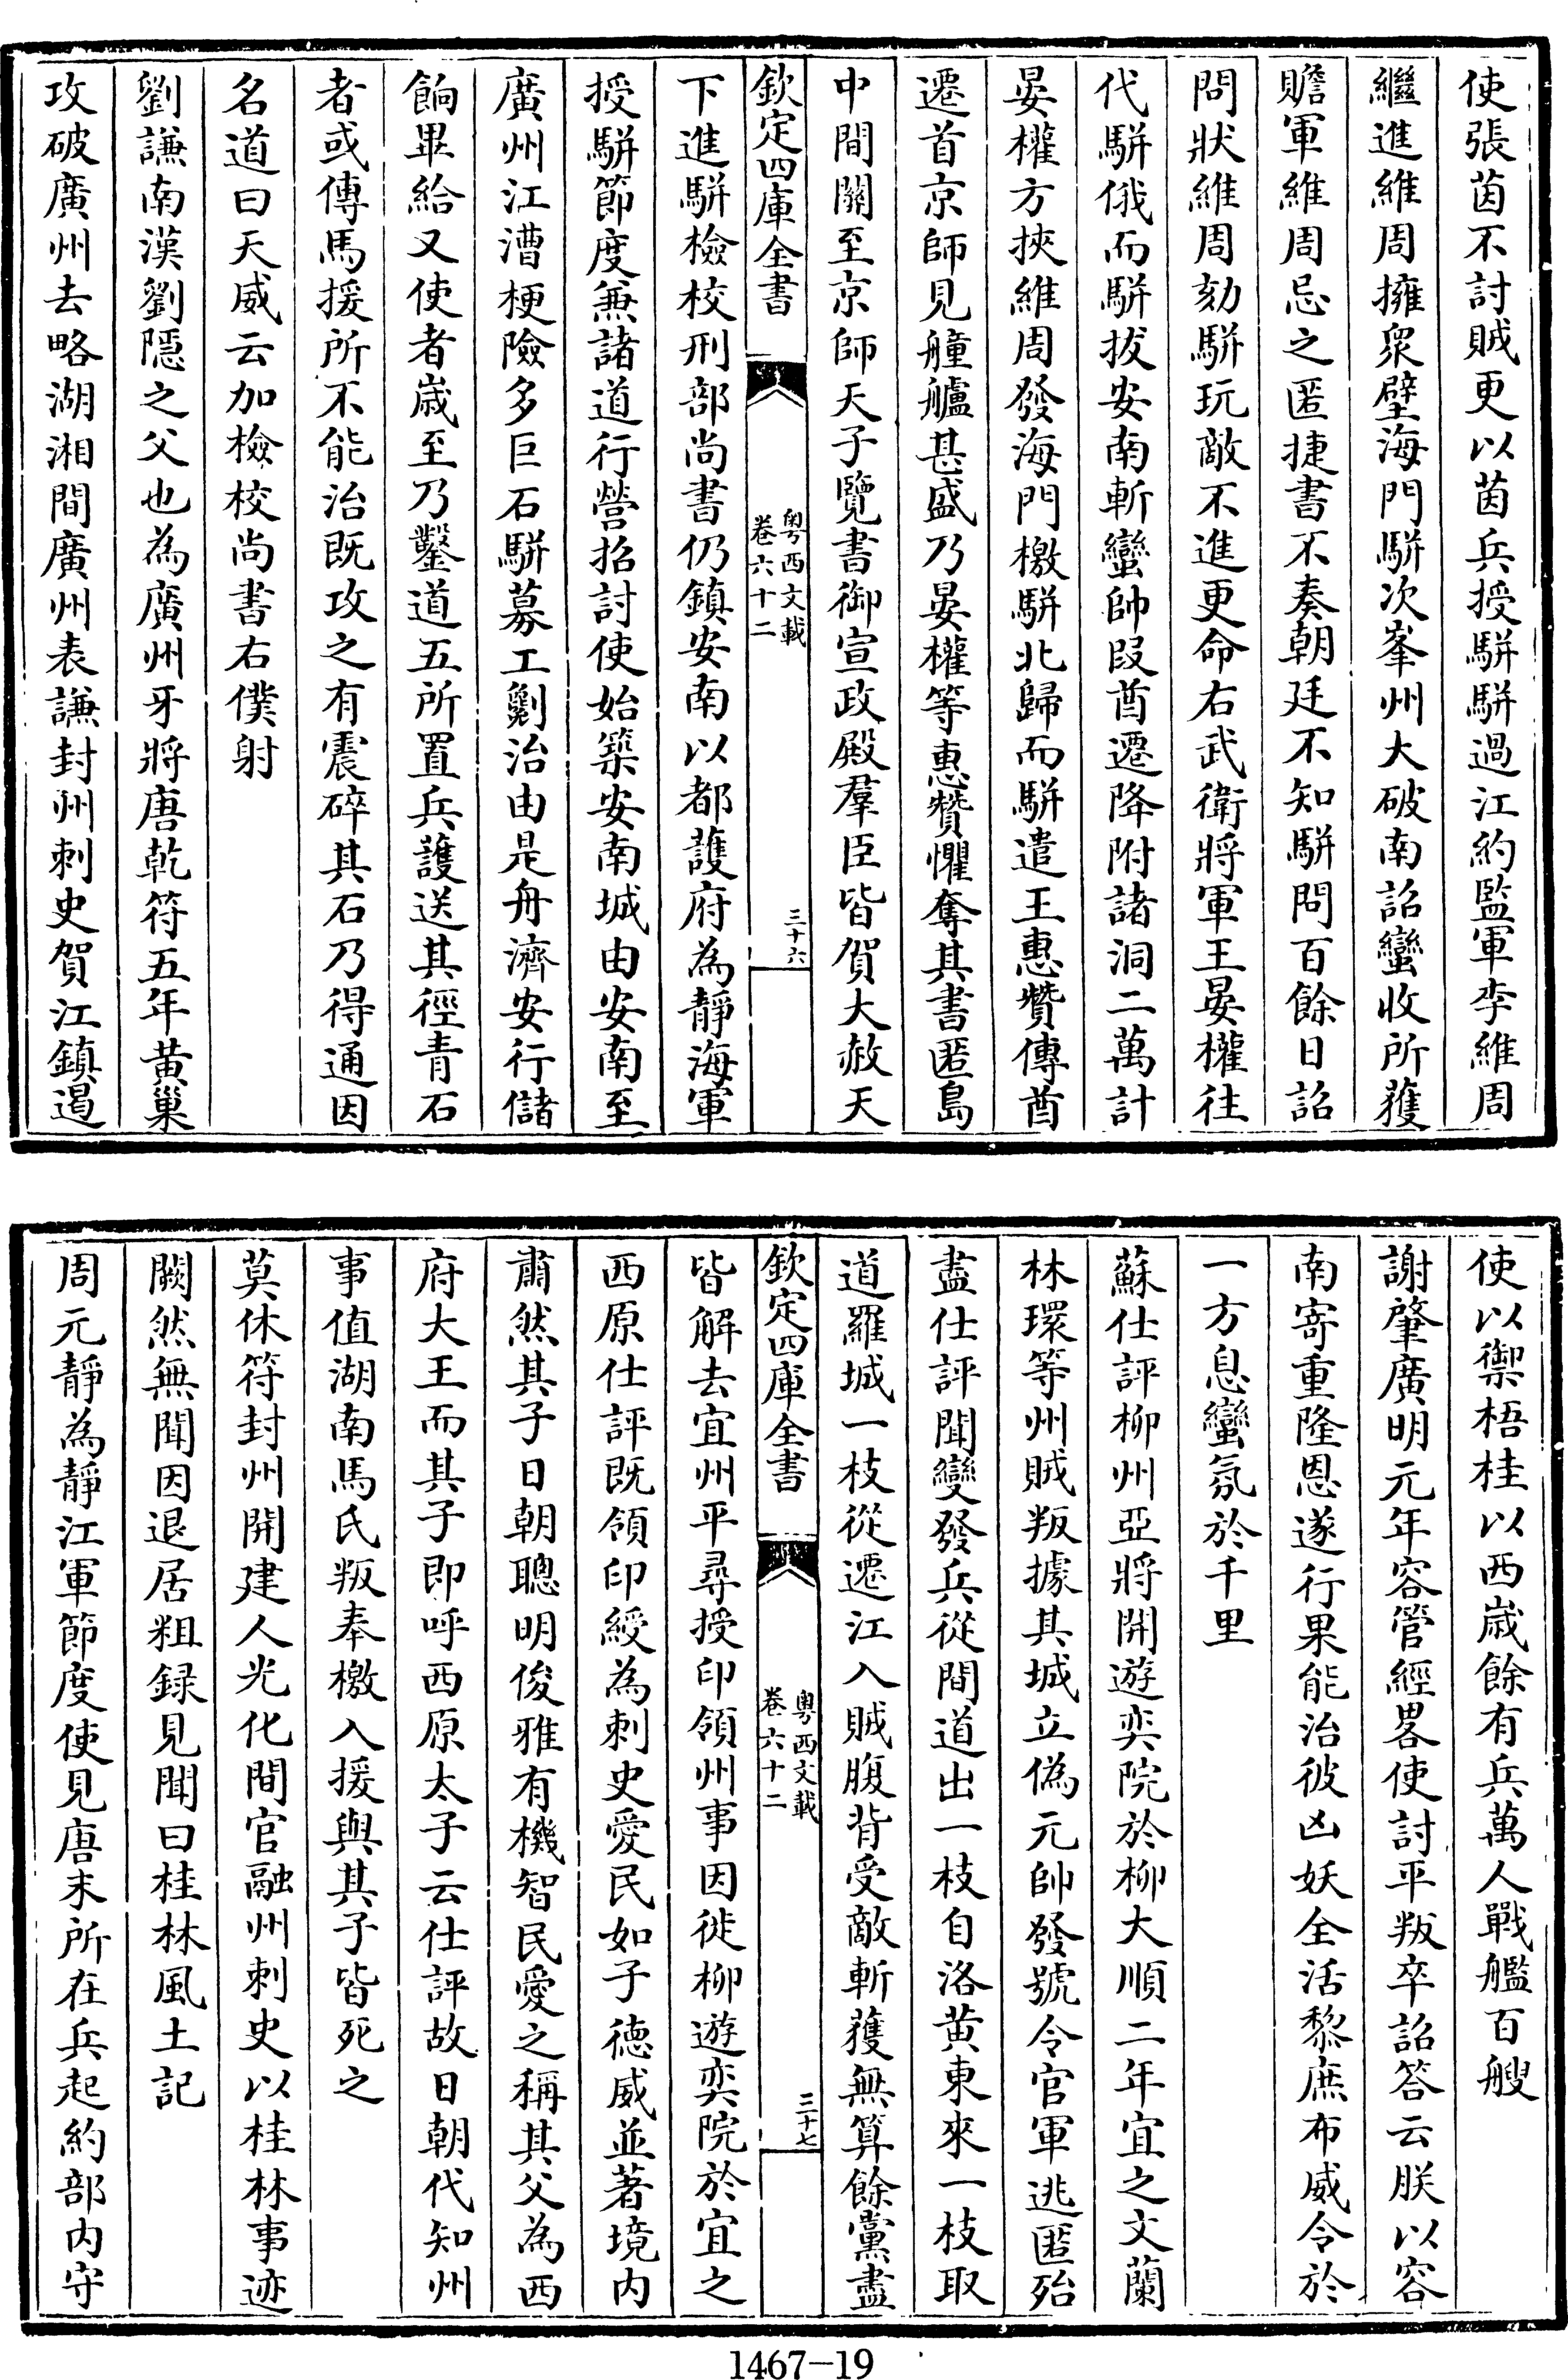 使張茵不討賊更以茵兵授駢駢過江約監軍李維周
繼進維周擁衆壁海門駢次峯州大破南詔蠻收所獲
贍軍維周忌之匿捷書不奏朝廷不知駢問百餘日詔
問狀維周劾駢玩敵不進更命右武衛將軍王晏權往
代駢俄而駢拔安南斬蠻帥段酋遷降附諸洞二萬計
晏權方挾維周發海門檄駢北歸而駢遣王惠贊傳酋
遷首京師見艟艫甚盛乃晏權等惠贊懼奪其書匿島
中間關至京師天子覽書御宣政殿羣臣皆賀大赦天
欽定四庫全書
粤西文載
卷六十二
三十六
下進駢檢校刑部尚書仍鎮安南以都護府為靜海軍
授駢節度兼諸道行營招討使始築安南城由安南至
廣州江漕梗險多巨石駢募工劖治由是舟濟安行儲
餉畢給又使者歲至乃鑿道五所置兵護送其徑青石
者或傳馬援所不能治既攻之有震碎其石乃得通因
名道曰天威云加檢校尚書右僕射
劉謙南漢劉隱之父也為廣州牙將唐乾符五年黃巢
攻破廣州去略湖湘間廣州表謙封州刺史賀江鎮遏
使以禦梧桂以西歲餘有兵萬人戰艦百艘
謝肇廣明元年容管經畧使討平叛卒詔答云朕以容
南寄重隆恩遂行果能治彼凶妖全活黎庶布威令於
一方息蠻氛於千里
蘇仕評柳州亞將開遊奕院於柳大順二年宜之文蘭
林環等州賊叛據其城立偽元帥發號令官軍逃匿殆
盡仕評聞變發兵從間道出一枝自洛黃東來一枝取
道羅城一枝從遷江入賊腹背受敵斬獲無算餘黨盡
欽定四庫全書
粤西文載
卷六十二
三十七
皆解去宜州平尋授印領州事因徙柳遊奕院於宜之
西原仕評既領印綬為刺史愛民如子德威並著境內
肅然其子日朝聰明俊雅有機智民愛之稱其父為西
府大王而其子即呼西原太子云仕評故日朝代知州
事值湖南馬氏叛奉檄入援與其子皆死之
莫休符封州開建人光化間官融州刺史以桂林事迹
闕然無聞因退居粗録見聞曰桂林風土記
周元靜為靜江軍節度使見唐末所在兵起約部內守
1467-19